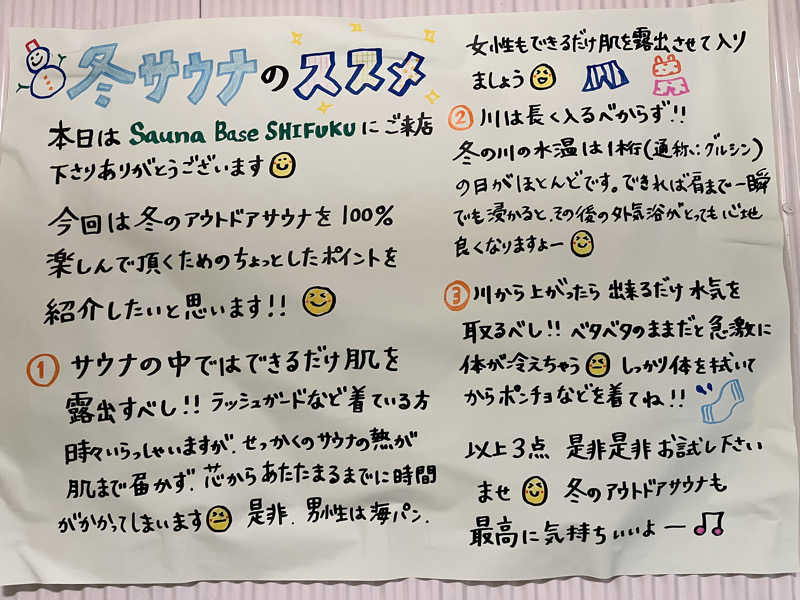 冬サウナのススメ
本日は Sauna Base SHIFUKU にご来店
下さりありがとうございます
今回は冬のアウトドアサウナを100%
楽しんで頂くためのちょっとしたポイントを
紹介したいと思います!!
① サウナの中ではできるだけ肌を
露出すべし!! ラッシュガードなど着ている方
時々いらっしゃいますが、せっかくのサウナの熱が
肌まで届かず、芯からあたたまるまでに時間
がかかってしまいます 是非、男性は海パン、
女性もできるだけ肌を露出させて入り
ましょう
② 川は長く入るべからず!!
冬の川の水温は1桁(通称:グルシン)
の日がほとんどです。できれば肩まで一瞬
でも浸かると、その後の外気浴がとっても心地
良くなりますよー
③ 川から上がったら出来るだけ水気を
取るべし!! ベタベタのままだと急激に
体が冷えちゃう しっかり体を拭いて
からポンチョなどを着てね!!
以上3点 是非是非お試し下さい
ませ 冬のアウトドアサウナも
最高に気持ちいいよー